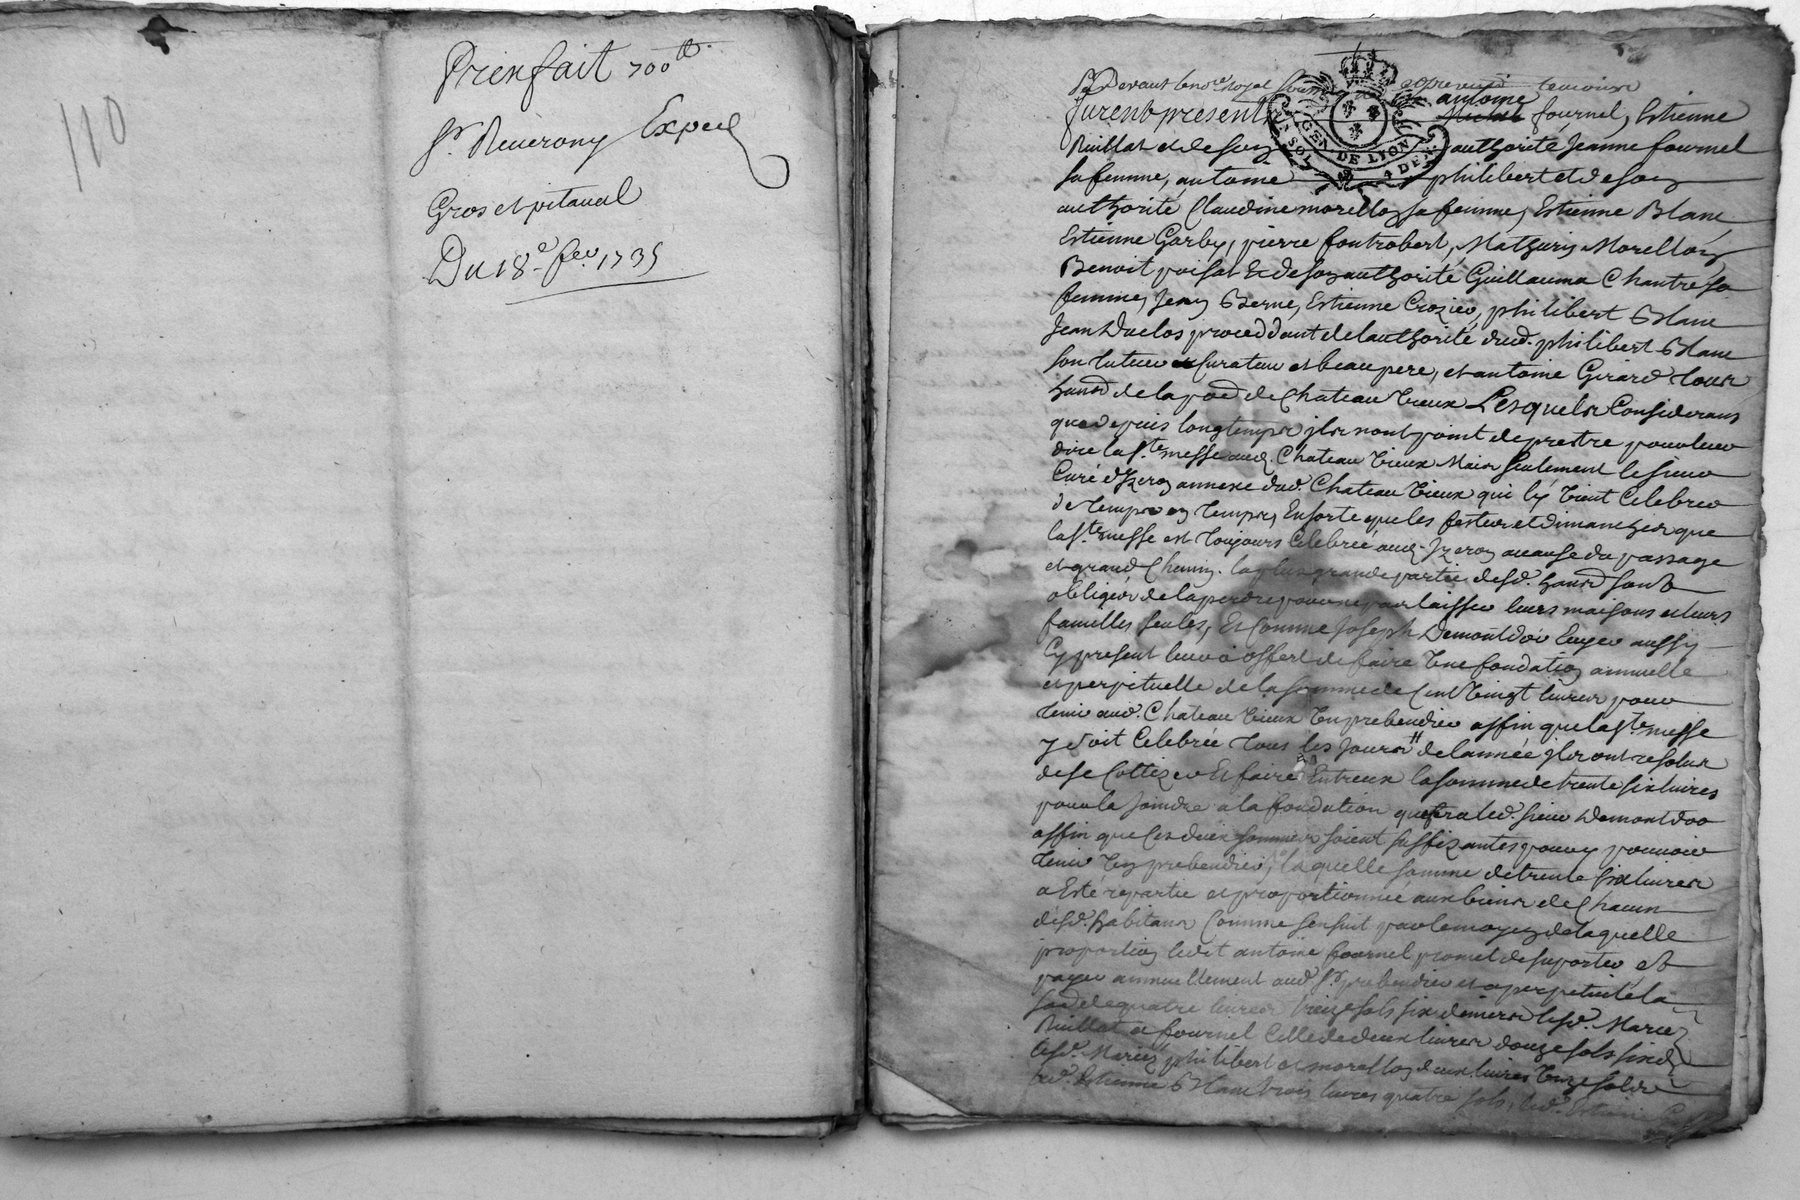 110
Prixfait 700tt
Sr. Reverony Exped
Gros et pitaval
Du 18e. fev. 1735
Par Devant le no.re Royal soussigné temoins
furent presents antoine fournel, Estienne
GEN. DE LYON
SOL 4 DEN.
Ruillat et de son authorité Jeanne fournel
sa femme, antoine philibert et de son
authorité Claudine morellon sa femme, Estienne Blanc
Estienne Garby, pierre fontrobert, Mathurin Morellon
Benoit poisat et de son authorité Guillauma Chantre sa
femme, Jean Berne, Estienne Crozier, philibert Blanc
Jean Duclos proceddant de l'authorité dud. philibert Blanc
son tuteur curateur et beaupere, et antoine Girard tous
habnd de la de Chateau Vieux Lesquels Considerans
que depuis longtemps ils nont point de prestre pour leur
dire la Ste messe aud. Chateau Vieux Mais seulement le sieur
Curé d'Izeron annexe dud. Chateau Vieux qui ly vient Celebrer
de temps en temps, En sorte que les festes et dimanches que
la Ste messe est toujours Celebrée aud. Izeron a cause du passage
et grand Chemin. la plus grande partie desd. habnd sont
obligés de la perdre pour ne pas laisser leurs maisons et leurs
familles seules, Et Comme Joseph Demontdor Ecuyer aussy
Cy present leur a offert de faire Une fondation annuelle
et perpetuelle de la somme de Cent Vingt livres pour
tenir aud. Chateau Vieux Un prebendier affin que la Ste messe
y soit Celebrée tous les Jours de lannée ils ont resolus
de se Cottizer Et faire Entreux la somme de trente six livres
pour la Joindre a la fondation que fera led. sieur Demontdor
affin que Ces deux sommes soient suffizantes pour y pouvoir
tenir Un prebendier, laquelle somme de trente six livres
a Esté repartie et proportionnée aux biens de Chacun
desd. habitans Comme sensuit par le moyen de laquelle
proportion ledit antoine fournel promet de suporter et
payer annuellement aud. Sr. prebendier et a perpetuité la
somme de quatre livres treize sols six deniers lesd. Mariez
Ruillat et fournel Celle de deux livres douze sols six d.
lesd. Mariez philibert et morellon deux livres Unze sols
led. Estienne Blanc trois livres quatre sols, led. Estienne